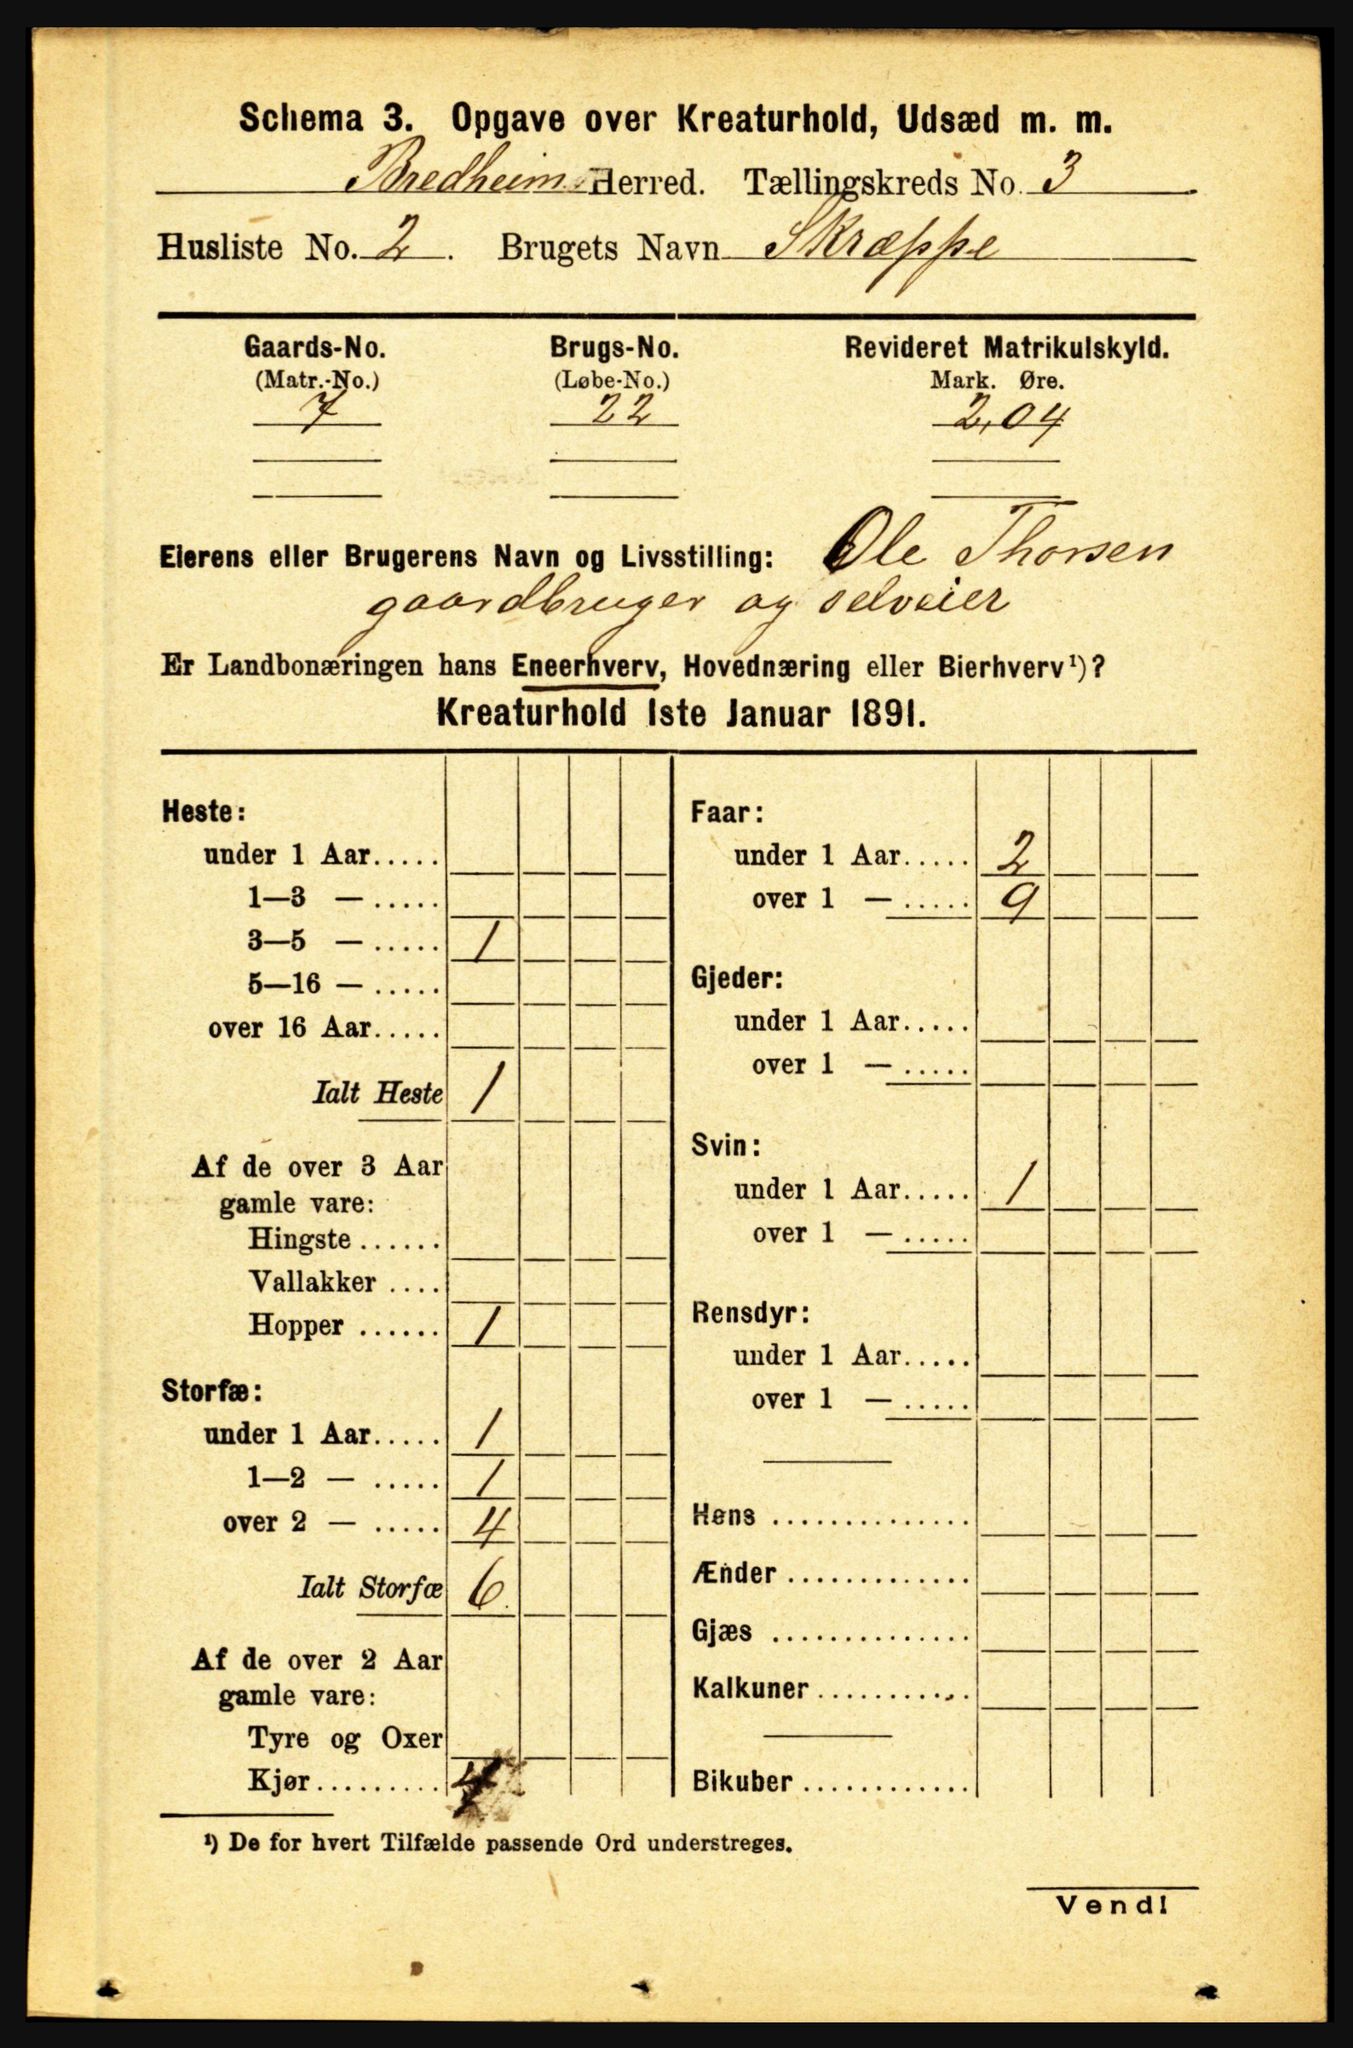 Schema 3. Opgave over Kreaturhold, Udsæd m. m.
Bredheim Herred. Tællingskreds No. 3
Husliste No. 2. Brugets Navn Skræppe
Gaards-No. Brugs-No. Revideret Matrikulskyld.
(Matr.-No.) (Løbe-No.) Mark. Øre.
7 22 2,04
Eierens eller Brugerens Navn og Livsstilling: Ole Thorsen
gaardbruger og selveier
Er Landbonæringen hans Eneerhverv, Hovednæring eller Bierhverv¹)?
Kreaturhold 1ste Januar 1891.
Heste:
under 1 Aar.....
1—3 — .....
3—5 — ..... 1
5—16 — .....
over 16 Aar.....
Ialt Heste 1
Af de over 3 Aar
gamle vare:
Hingste......
Vallakker....
Hopper...... 1
Storfæ:
under 1 Aar..... 1
1—2 — ..... 1
over 2 — ..... 4
Ialt Storfæ 6
Af de over 2 Aar
gamle vare:
Tyre og Oxer
Kjør......... 4
Faar:
under 1 Aar..... 2
over 1 — ..... 9
Gjeder:
under 1 Aar.....
over 1 — .....
Svin:
under 1 Aar..... 1
over 1 — .....
Rensdyr:
under 1 Aar.....
over 1 — .....
Høns ..............
Ænder .............
Gjæs ..............
Kalkuner............
Bikuber .............
¹) De for hvert Tilfælde passende Ord understreges.
Vend!